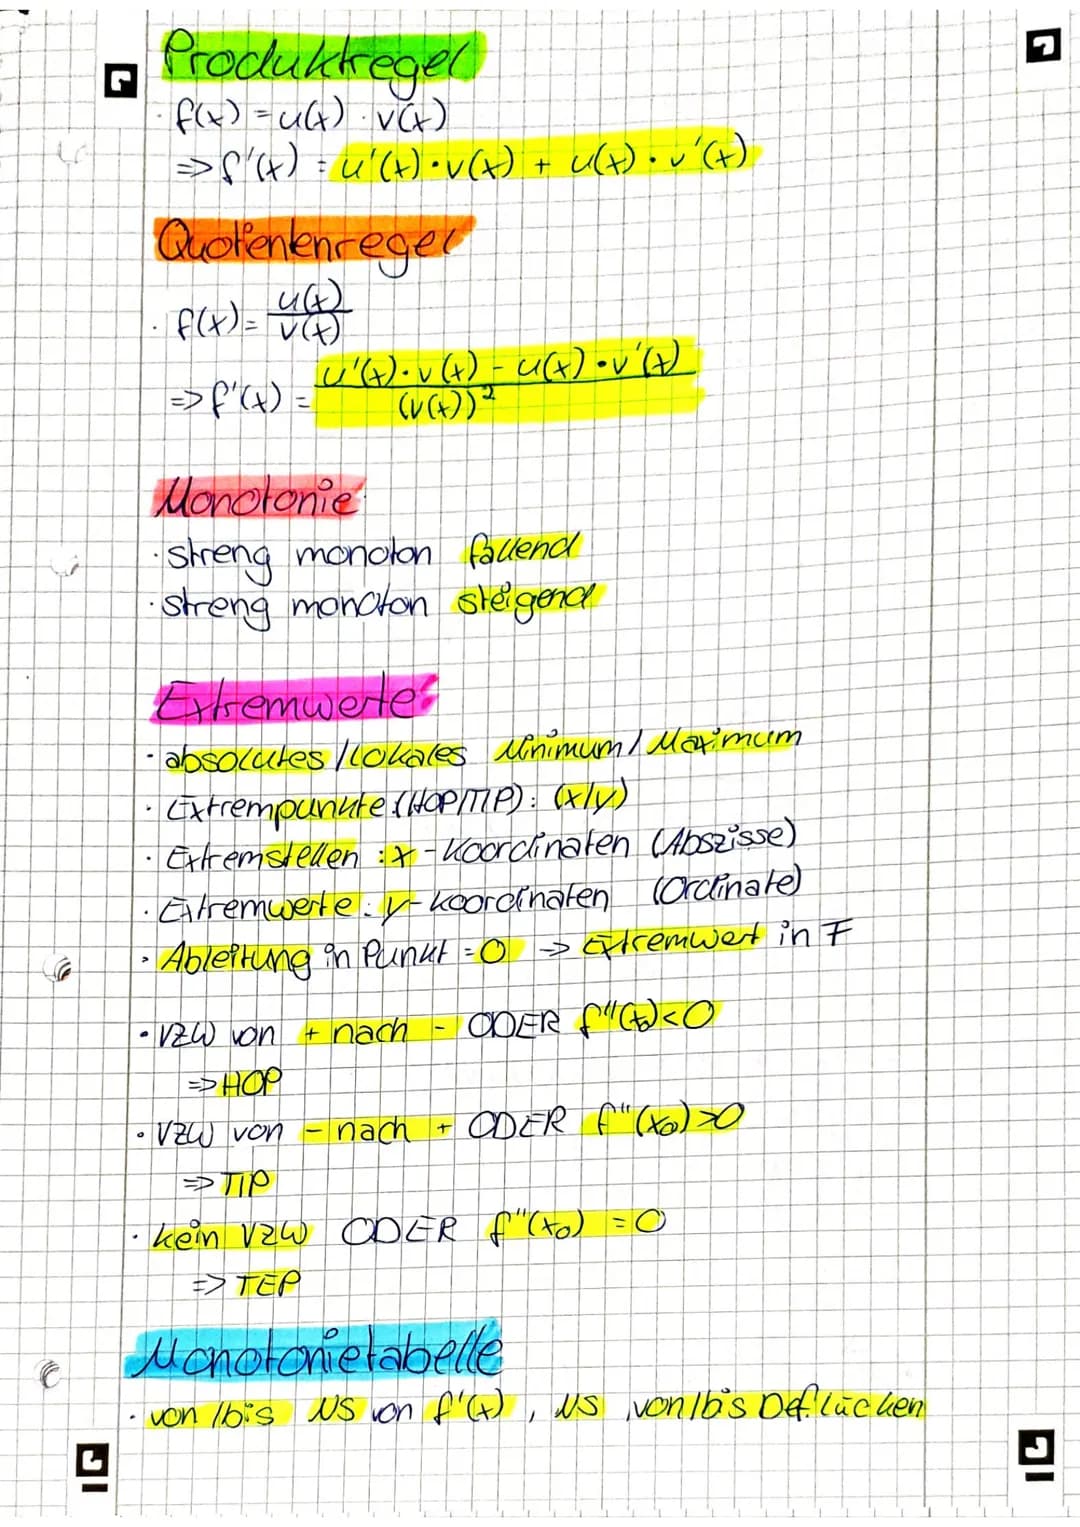 Produktregel
· f(x) = u(x) · v(x)
=> f'(x) = u'(x) · v(x) + u(x) · v'(x)
Quotientenregel
· f(x) = u(x)
v(x)
=> f'(x) = u'(x) · v(x) - u(x) · v'(x)
(v(x))²
Monotonie
· streng monoton fallend
· streng monoton steigend
Extremwerte
· absolutes / lokales Minimum / Maximum
· Extrempunkte (HOP/TIP): (x/y)
· Extremstellen : x-Koordinaten (Abszisse)
· Extremwerte : y-koordinaten (Ordinate)
· Ableitung in Punkt = 0 => Extremwert in F
· VZW von + nach - ODER f''(x₀)<0
=> HOP
· VZW von - nach + ODER f''(x₀)>0
=> TIP
· kein VZW ODER f''(x₀) = 0
=> TEP
Monotonietabelle
· von /bis NS von f'(x) , NS von/bis Def.lücken